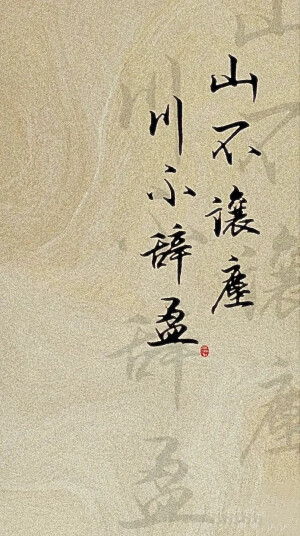 山不讓塵
川不辞盈